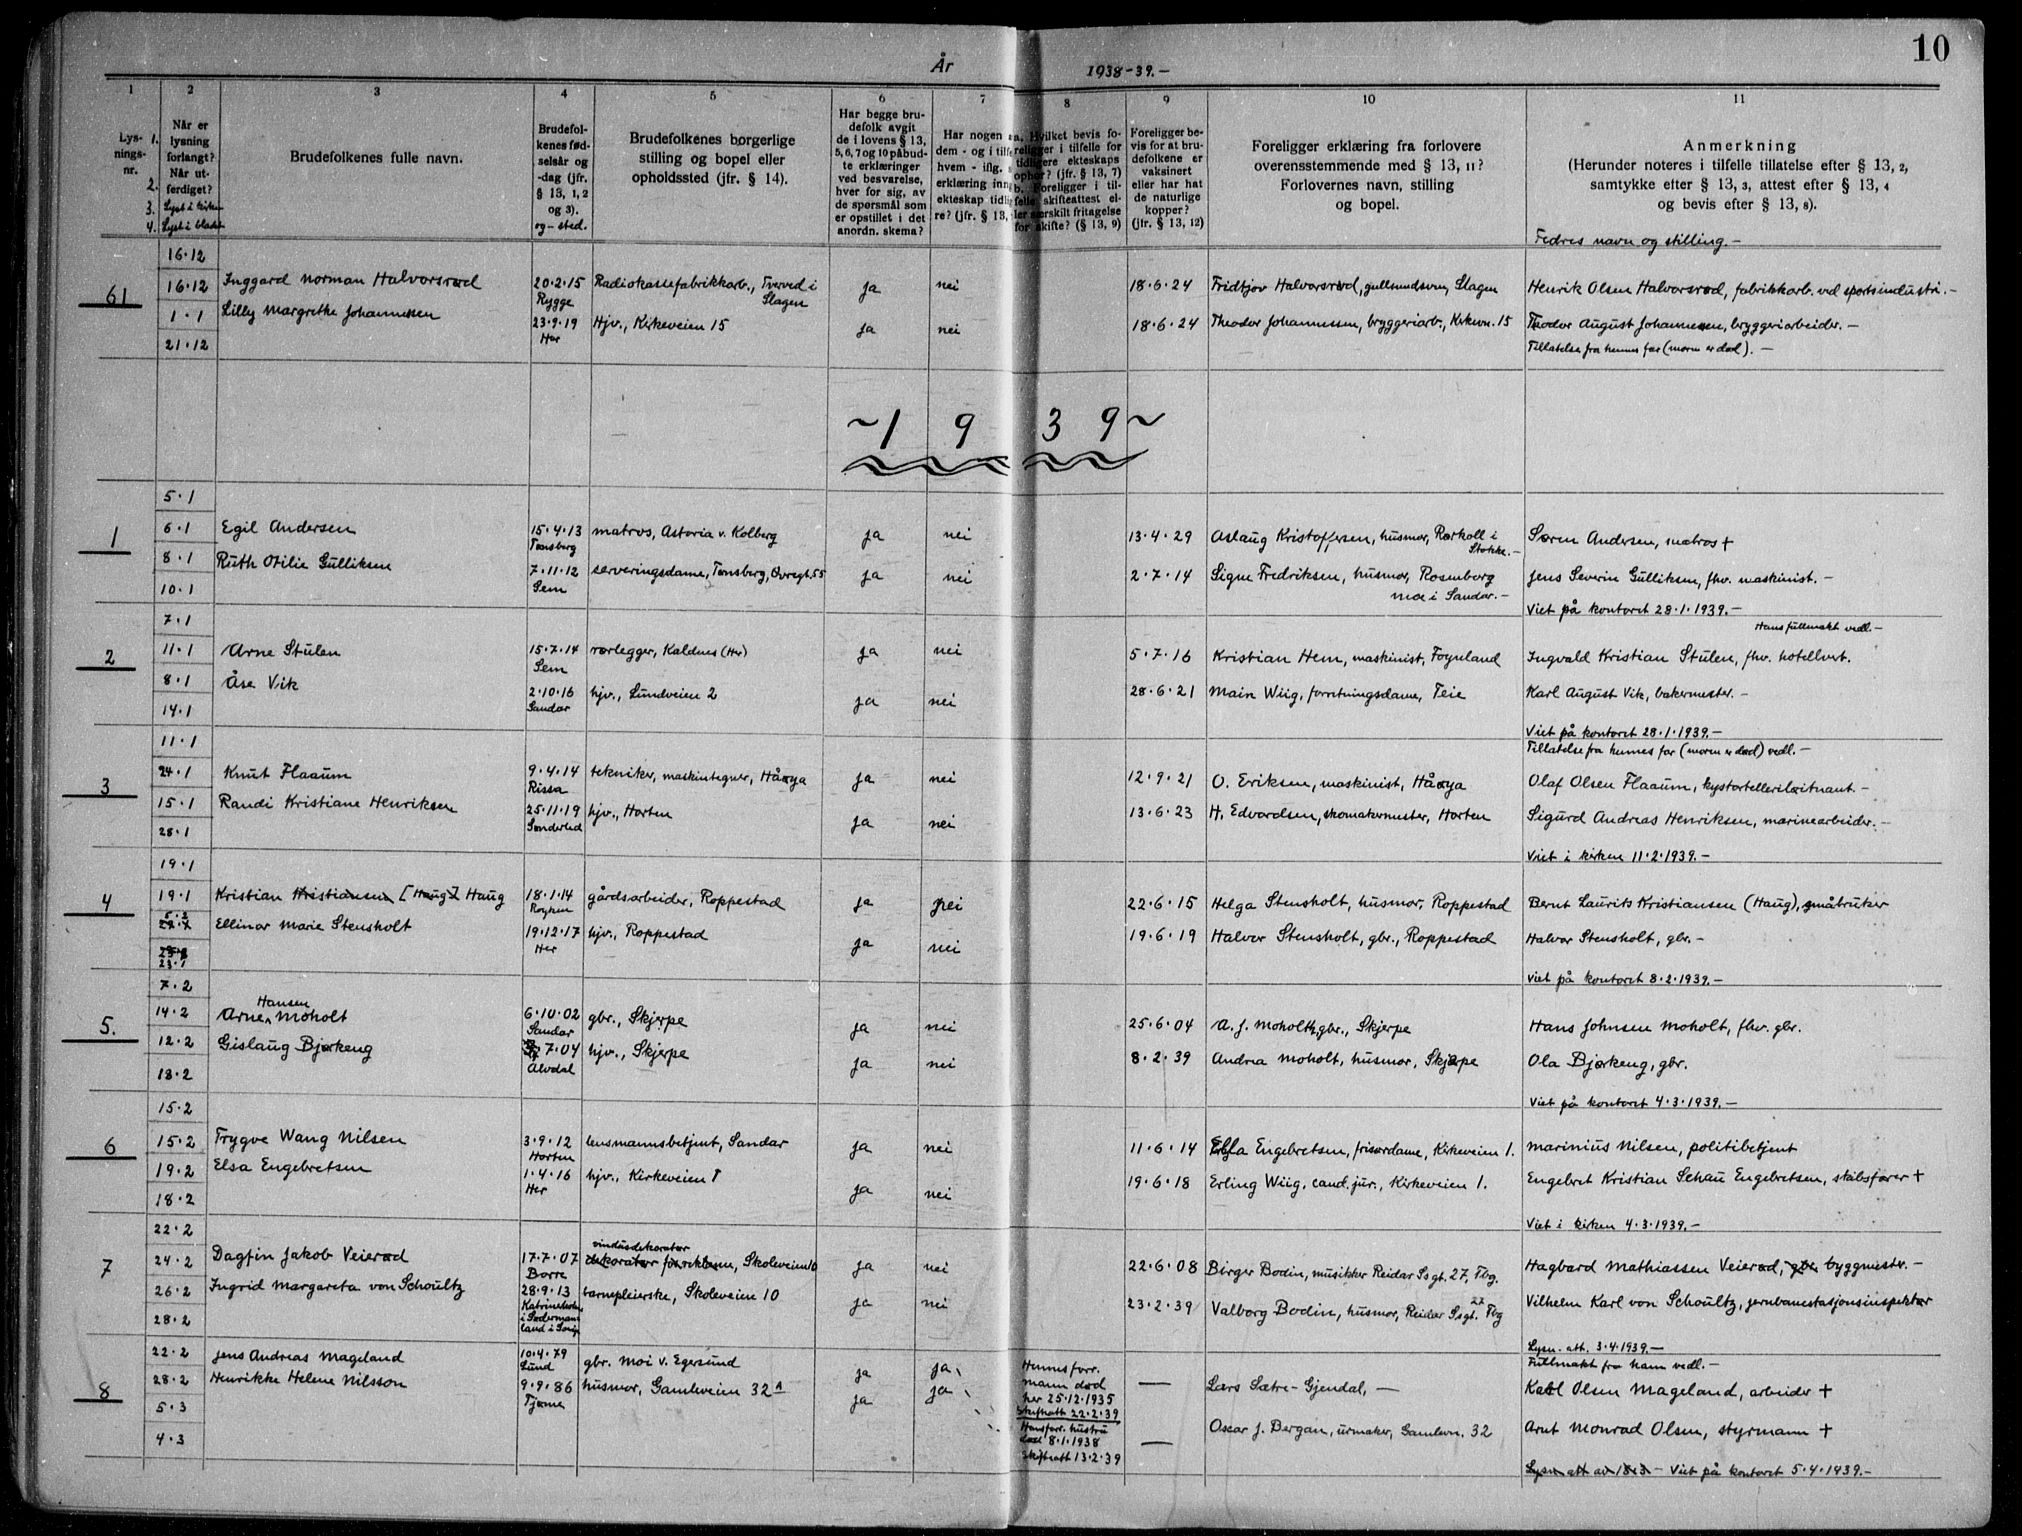 10
År 1938-39.-
1 2 3 4 5 6 7 8 9 10 11
Lys-
nings-
nr.
1.
2.
3.
4.
Når er
lysning
forlangt?
Når ut-
ferdiget?
Lyst i kirken
Lyst i bladet
Brudefolkenes fulle navn.
Brudefol-
kenes fød-
selsår og
-dag (jfr.
§ 13, 1, 2
og 3).
og - sted.
Brudefolkenes borgerlige
stilling og bopel eller
opholdssted (jfr. § 14).
Har begge bru-
defolk avgit
de i lovens § 13,
5, 6, 7 og 10 påbud-
te erklæringer
ved besvarelse,
hver for sig, av
de spørsmål som
er opstillet i det
anordn. skema?
Har nogen a
dem - og i tilf
hvem - iflg.
erklæring inng
ekteskap tidlig
re? (jfr. § 13,
a. Hvilket bevis fo-
religger i tilfelle for
tidligere ekteskaps
ophør? (jfr. § 13, 7)
b. Foreligger i til-
felle skifteattest el-
ler særskilt fritagelse
for skifte? (§ 13, 9)
Foreligger be-
vis for at bru-
defolkene er
vaksinert
eller har hat
de naturlige
kopper?
(jfr. § 13, 12)
Foreligger erklæring fra forlovere
overensstemmende med § 13, 11?
Forlovernes navn, stilling
og bopel.
Anmerkning
(Herunder noteres i tilfelle tillatelse efter § 13, 2,
samtykke efter § 13, 3, attest efter § 13, 4
og bevis efter § 13, 8).
Fedres navn og stilling.-
61
16.12
16.12
1.1
21.12
Inggard Norman Halvorsrød 20.2.15 Rygge Radiokassefabrikkarb., Tverved i Slagen ja nei 18.6.24 Fridtjov Halvorsrød, gullsmedsven, Slagen Henrik Olsen Halvorsrød, fabrikkarb. ved sportsindustri.-
Lilly Margrethe Johannessen 23.9.19 Her Hjv., Kirkeveien 15 ja nei 18.6.24 Theodor Johannessen, bryggeriarb., Kirkevn. 15 Theodor August Johannessen, bryggeriarbeider.-
Tillatelse fra hennes far (moren er død).-
~1 9 3 9~
1
5.1
6.1
8.1
10.1
Egil Andersen 15.4.13 Tønsberg matros, Astoria v. Kolberg ja nei 13.4.29 Aslaug Kristoffersen, husmor, Rørkoll i Stokke.- Søren Andersen, matros +
Ruth Otilie Gulliksen 7.11.12 Sem serveringsdame, Tønsberg, Øvregt. 55 ja nei 2.7.14 Signe Fredriksen, husmor, Rosenborg moe i Sandar.- Jens Severin Gulliksen, fhv. maskinist.-
Viet på kontoret 28.1.1939.-
2
7.1
11.1
8.1
14.1
Hans fullmakt vedl.-
Arne Stulen 15.7.14 Sem rørlegger, Kaldnes (Her) ja nei 5.7.16 Kristian Hem, maskinist, Foynland Ingvald Kristian Stulen, fhv. hotellvert.
Åse Vik 2.10.16 Sandar hjv., Lundveien 2 ja nei 28.6.21 Main Wiig, forretningsdame, Teie Karl August Vik, bakermester.-
Viet på kontoret 28.1.1939.-
3
11.1
24.1
15.1
28.1
Tillatelse fra hennes far (moren er død) vedl.-
Knut Flaaum 9.4.14 Rissa tekniker, maskintegner, Håøya ja nei 12.9.21 O. Eriksen, maskinist, Håøya Olaf Olsen Flaaum, kystartelleriløitnant.-
Randi Kristiane Henriksen 25.11.19 Søndeled hjv., Horten ja nei 13.6.23 H. Edvardsen, skomakermester, Horten Sigurd Andreas Henriksen, marinearbeider.-
Viet i kirken 11.2.1939.-
4
19.1
19.1
5.2
23.1
Kristian Kristiansen [Haug] Haug 18.1.14 Røyken gårdsarbeider, Roppestad ja nei 22.6.15 Helga Stensholt, husmor, Roppestad Bernt Laurits Kristiansen (Haug), småbruker
Ellinor Marie Stensholt 19.12.17 Her hjv., Roppestad ja nei 19.6.19 Halvor Stensholt, gbr., Roppestad Halvor Stensholt, gbr.-
Viet på kontoret 8.2.1939.-
5.
7.2
14.2
12.2
13.2
Arne Hansen Moholt 6.10.02 Sandar gbr., Skjerpe ja nei 25.6.04 A. J. Moholt, gbr., Skjerpe Hans Johnsen Moholt, fhv. gbr.
Gislaug Bjørkeng 7.04 Alvdal hjv., Skjerpe ja nei 8.2.39 Andrea Moholt, husmor, Skjerpe Ola Bjørkeng, gbr.
Viet på kontoret 4.3.1939.-
6
15.2
15.2
19.2
18.2
Trygve Wang Nilsen 3.9.12 Horten lensmannsbetjent, Sandar ja nei 11.6.14 Ella Engebretsen, frisørdame, Kirkeveien 1. Marinius Nilsen, politibetjent
Elsa Engebretsen 1.4.16 Her hjv., Kirkeveien 1 ja nei 19.6.18 Erling Wiig, cand. jur., Kirkeveien 1. Engebret Kristian Schau Engebretsen, skibsfører +
Viet i kirken 4.3.1939.-
7
22.2
24.2
26.2
28.2
Dagfin Jakob Veierød 17.7.07 Borre vindusdekoratør dekoratør for reklamen, Skoleveien 10 ja nei 22.6.08 Birger Bodin, musikker Reidar Ssgt. 27, Tbg. Hagbard Mathiassen Veierød, gbr. byggmester.-
Ingrid Margareta von Schoultz 28.9.13 Katrineholm i Södermanland i Sverige barnepleierske, Skoleveien 10 ja nei 23.2.39 Valborg Bodin, husmor, Reidar Ssgt. 27 Tbg Vilhelm Karl von Schoultz, jernbanestasjonsinspektør
Lysn. att. 3.4.1939.-
8
22.2
28.2
5.3
4.3
Fullmakt fra ham vedl.-
Jens Andreas Mageland 10.4.79 Lund gbr. Moi v. Egersund ja ja Hennes forr. mann død her 25.12.1935 skifteatt 22.2.39 — Lars Sætre-Gjendal, — Karl Olsen Mageland, arbeider +
Henrikke Helene Nilsson 9.9.86 Tjøme husmor, Gamleveien 32 A ja ja Hans forr. hustru død 8.1.1938 skifteatt 13.2.39 — Oscar J. Bergan, urmaker, Gamlevn. 32 Arnt Monrad Olsen, styrmann +
Lysn att av 18.3.- Viet på kontoret 5.4.1939.-